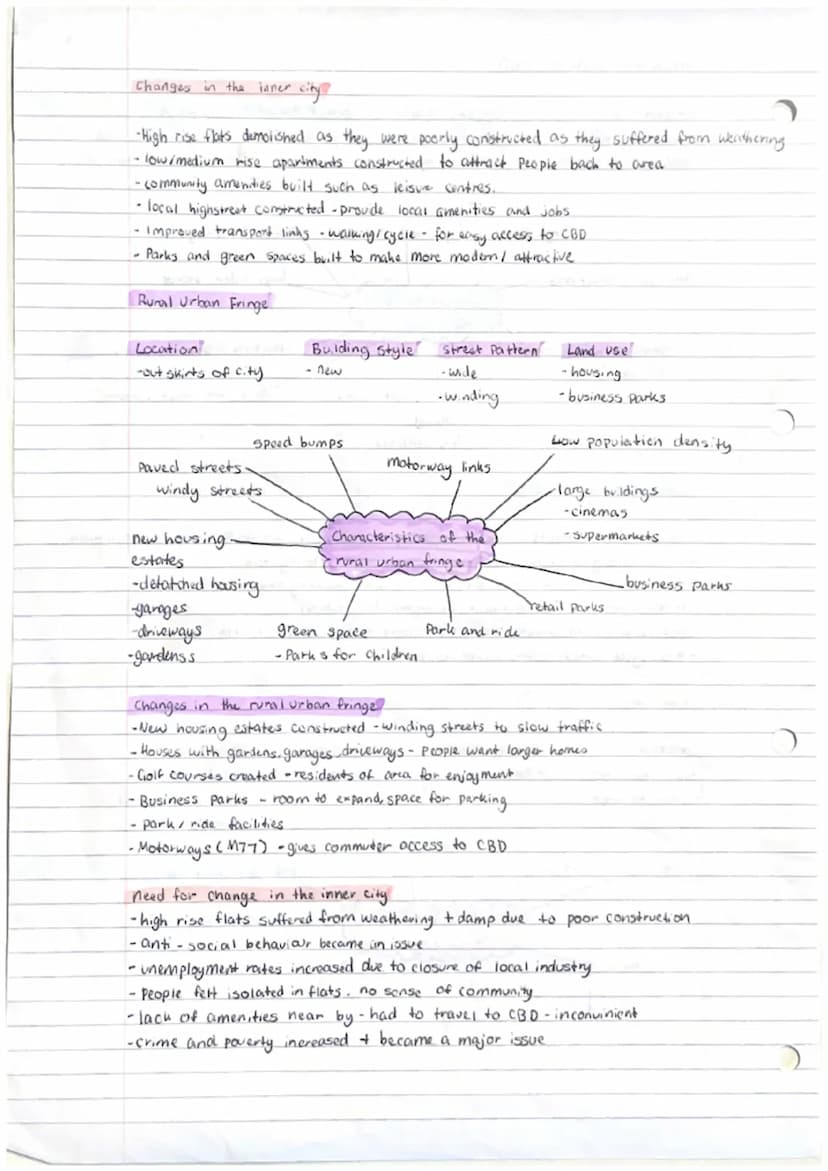 Changes in the inner city
-High rise flats demolished as they were poorly constructed as they suffered from weathering
- low/medium rise apartments constructed to attract people back to area
- community amenities built such as leisure centres.
- local highstreet constructed - provide local amenities and jobs
- Improved transport links - walking/cycle - for easy access to CBD
- Parks and green spaces built to make more modern/ attractive
Rural Urban Fringe
Location Building Style Street Pattern Land use
-out skirts of city - new -wide -housing
-winding -business parks
speed bumps Low population density
paved streets motorway links
windy streets large buildings
-cinemas
new housing Characteristics of the -supermarkets
estates rural urban fringe
-detatched housing business parks
-garages retail parks
-driveways green space Park and ride
-gardenss - Parks for children
Changes in the rural urban fringe
-New housing estates constructed - winding streets to slow traffic
- Houses with gardens, garages, driveways - People want larger homes
- Golf courses created - residents of area for enjoyment
- Business Parks - room to expand, space for parking
- park/ride facilities
- Motorways (M77) - gives commuter access to CBD
need for change in the inner city
-high rise flats suffered from weathering + damp due to poor construction
- anti - social behaviour became an issue
- unemployment rates increased due to closure of local industry
- People felt isolated in flats. no sense of community
- lack of amenities near by - had to travel to CBD - inconvinient
-crime and poverty increased + became a major issue